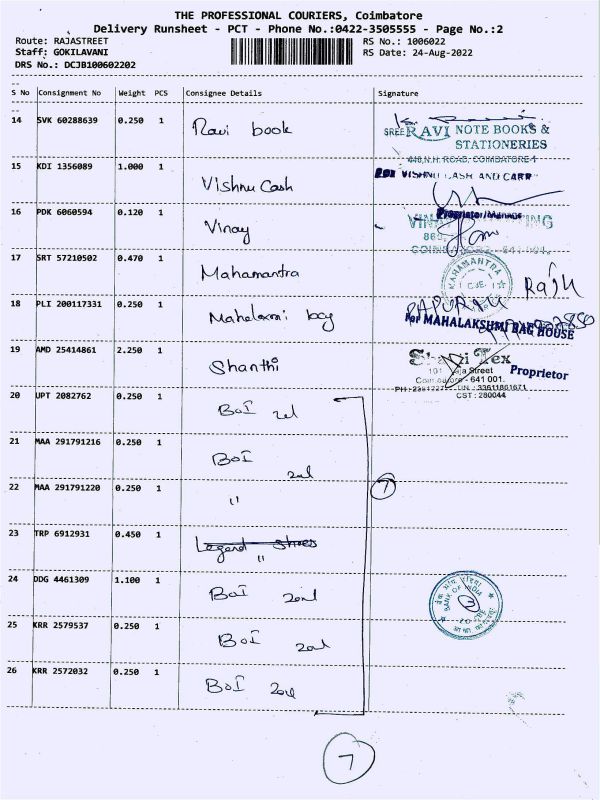 THE PROFESSIONAL COURIERS, Coimbatore
Delivery Runsheet - PCT - Phone No.:0422-3505555 - Page No.:2
Route: RAJASTREET
RS No.: 1006022
Staff: GOKILAVANI
RS Date: 24-Aug-2022
DRS No.: DCJB100602202
S No Consignment No Weight PCS Consignee Details Signature
14 SVK 60288639 0.250 1 Ravi book
SREE RAVI NOTE BOOKS &
STATIONERIES
446, N.H. ROAD, COIMBATORE-1
15 KDI 1356089 1.000 1 Vishnu Cash
FOR VISHNU CASH AND CARR
Proprietor/Manager
16 PDK 6060594 0.120 1 Vinay
17 SRT 57210502 0.470 1 Mahamantra
MAHAMANTRA
CJE-1
Raju
18 PLI 200117331 0.250 1 Mahalaxmi bag
For MAHALAKSHMI BAG HOUSE
Proprietor
19 AMD 25414861 2.250 1 Shanthi
Tex
Coimbatore - 641 001.
CST : 280044
20 UPT 2082762 0.250 1 BOI
21 MAA 291791216 0.250 1 BOI
22 MAA 291791220 0.250 1 "
7
23 TRP 6912931 0.450 1 Legend Shoes
"
24 DDG 4461309 1.100 1 BOI
BANK OF INDIA
25 KRR 2579537 0.250 1 BOI
26 KRR 2572032 0.250 1 BOI
7